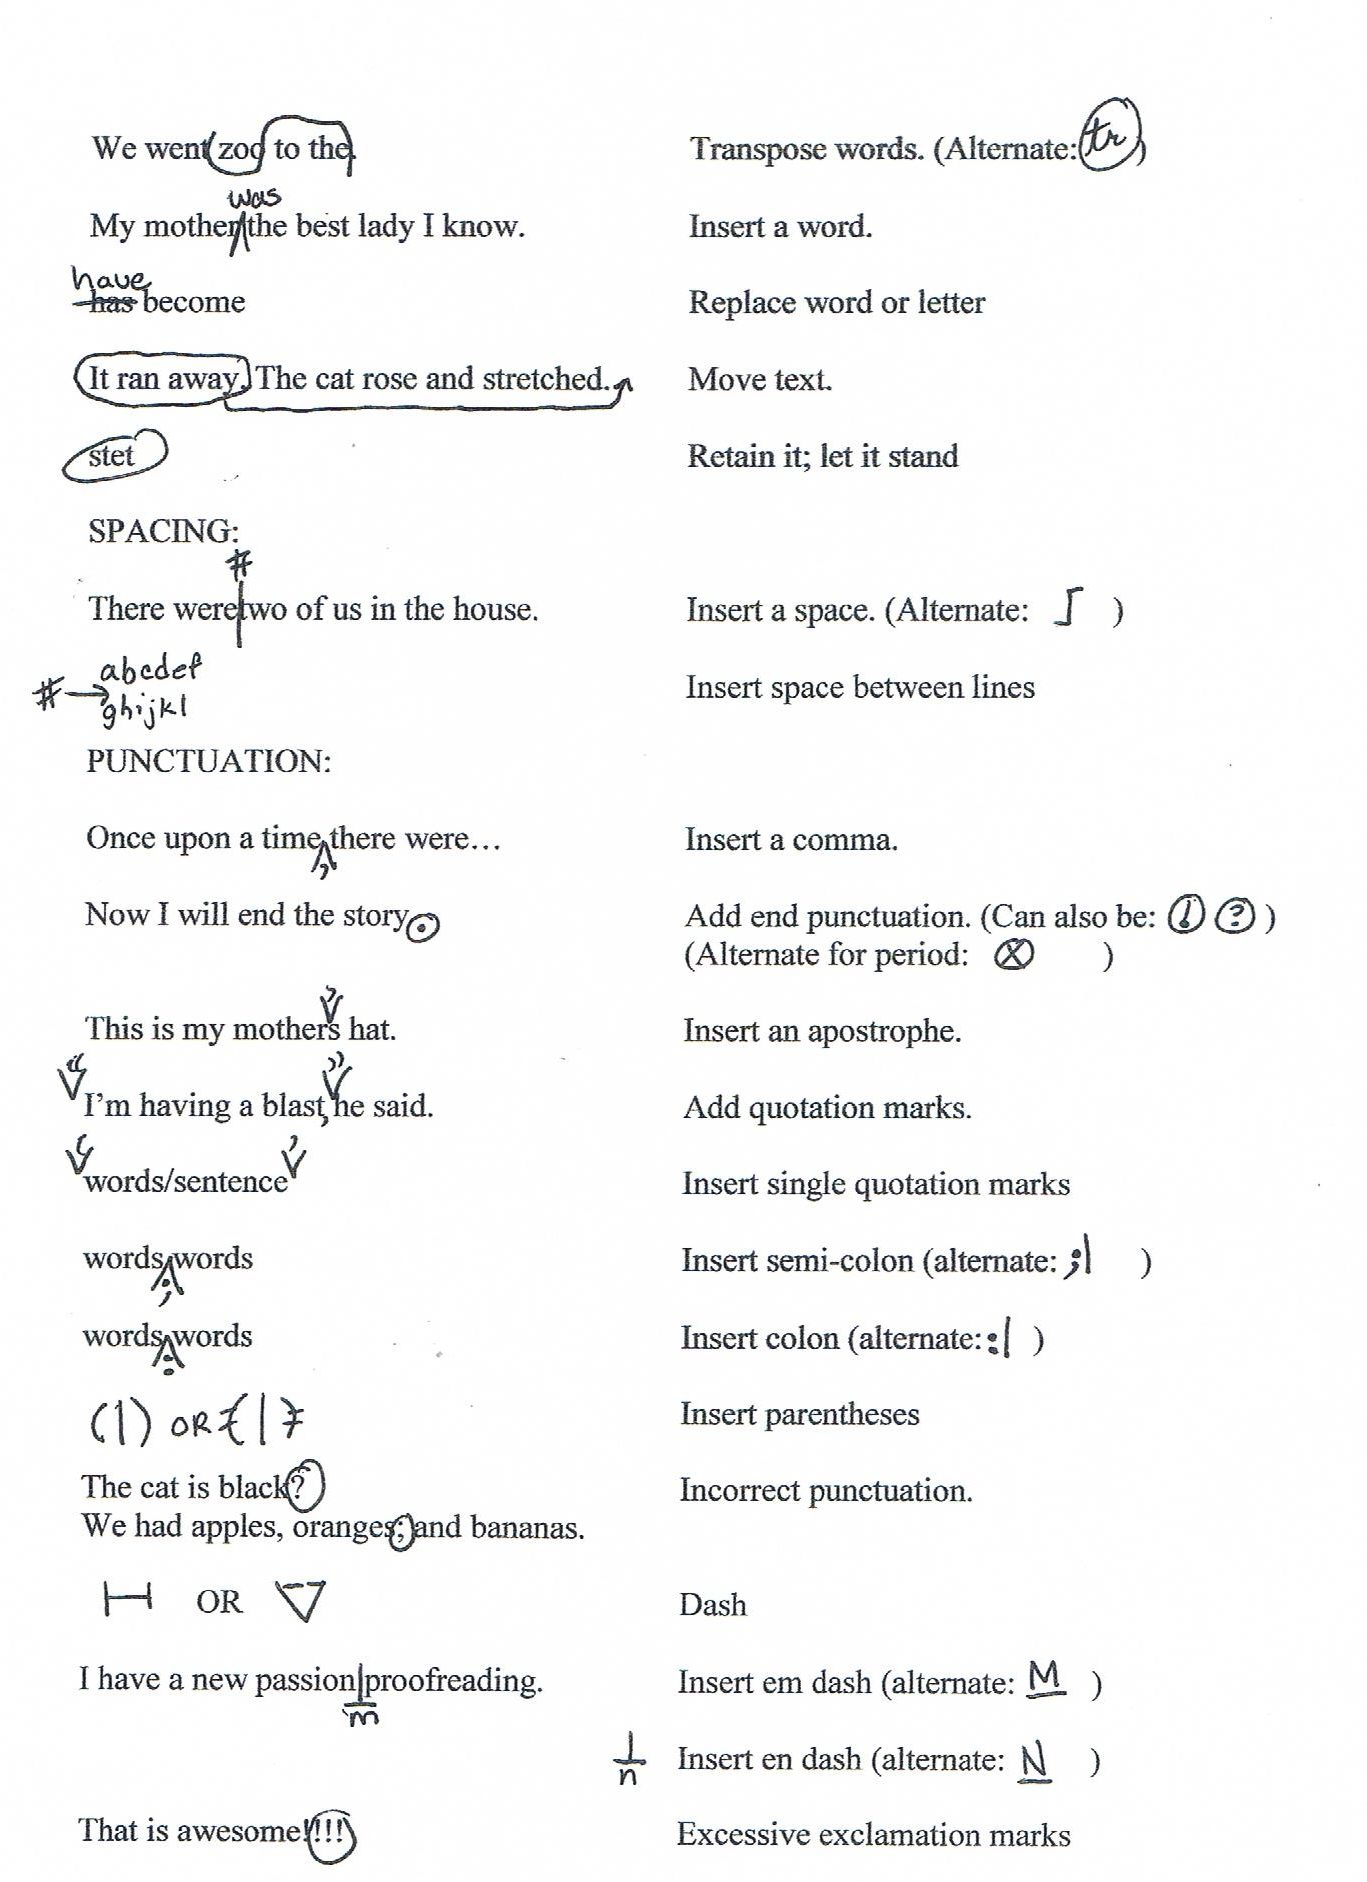 We went zoo to the. Transpose words. (Alternate: tr )
was
My mother the best lady I know. Insert a word.
have
has become Replace word or letter
It ran away. The cat rose and stretched. Move text.
stet Retain it; let it stand
SPACING:
#
There weretwo of us in the house. Insert a space. (Alternate: )
abcdef
# → Insert space between lines
ghijkl
PUNCTUATION:
Once upon a time there were… Insert a comma.
,
Now I will end the story. Add end punctuation. (Can also be: ! ? )
(Alternate for period: X )
’
This is my mothers hat. Insert an apostrophe.
“ ”
I’m having a blast, he said. Add quotation marks.
‘ ’
words/sentence Insert single quotation marks
words words Insert semi-colon (alternate: ;| )
;
words words Insert colon (alternate: :| )
:
(|) OR {|} Insert parentheses
The cat is black? Incorrect punctuation.
We had apples, oranges; and bananas.
OR Dash
I have a new passion|proofreading. Insert em dash (alternate: M )
m
n Insert en dash (alternate: N )
That is awesome!!!! Excessive exclamation marks